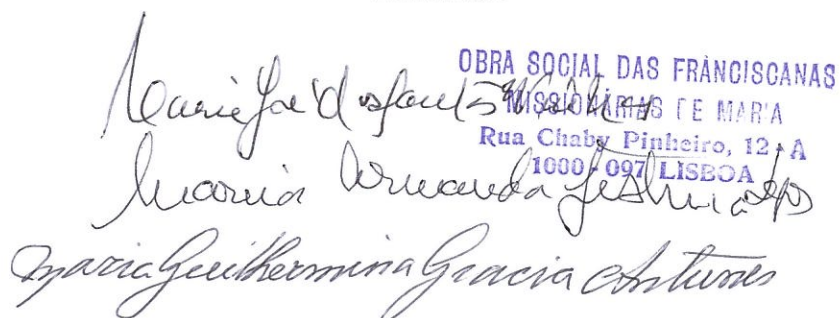 OBRA SOCIAL DAS FRANCISCANAS
MISSIONÁRIAS DE MARIA
Rua Chaby Pinheiro, 12-A
1000-097 LISBOA
Maria
Maria Armanda
Maria Guilhermina Gracia Antunes